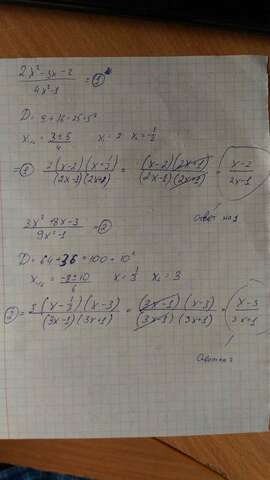 2x²-3x-2 / 4x²-1 = ①
D = 9 + 16 = 25 = 5²
x₁,₂ = 3±5 / 4 x₁ = 2 x₂ = -1/2
= ① 2(x-2)(x+1/2) / (2x-1)(2x+1) = (x-2)(2x+1) / (2x-1)(2x+1) = x-2 / 2x-1
Ответ на 1
3x²+8x-3 / 9x²-1 = ②
D = 64+36 = 100 = 10²
x₁,₂ = -8±10 / 6 x = 1/3 x₂ = 3
② = 3(x-1/3)(x-3) / (3x-1)(3x+1) = (3x-1)(x-3) / (3x-1)(3x+1) = x-3 / 3x+1